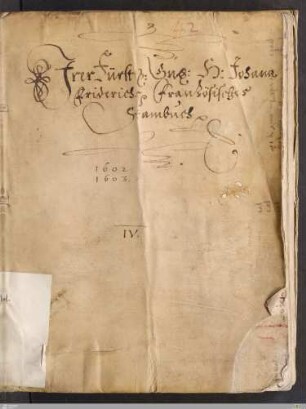 Irer Fürstl: Gna: H: Johann
Friderichs Französisches
Stambuch
1602.
1603.
IV.